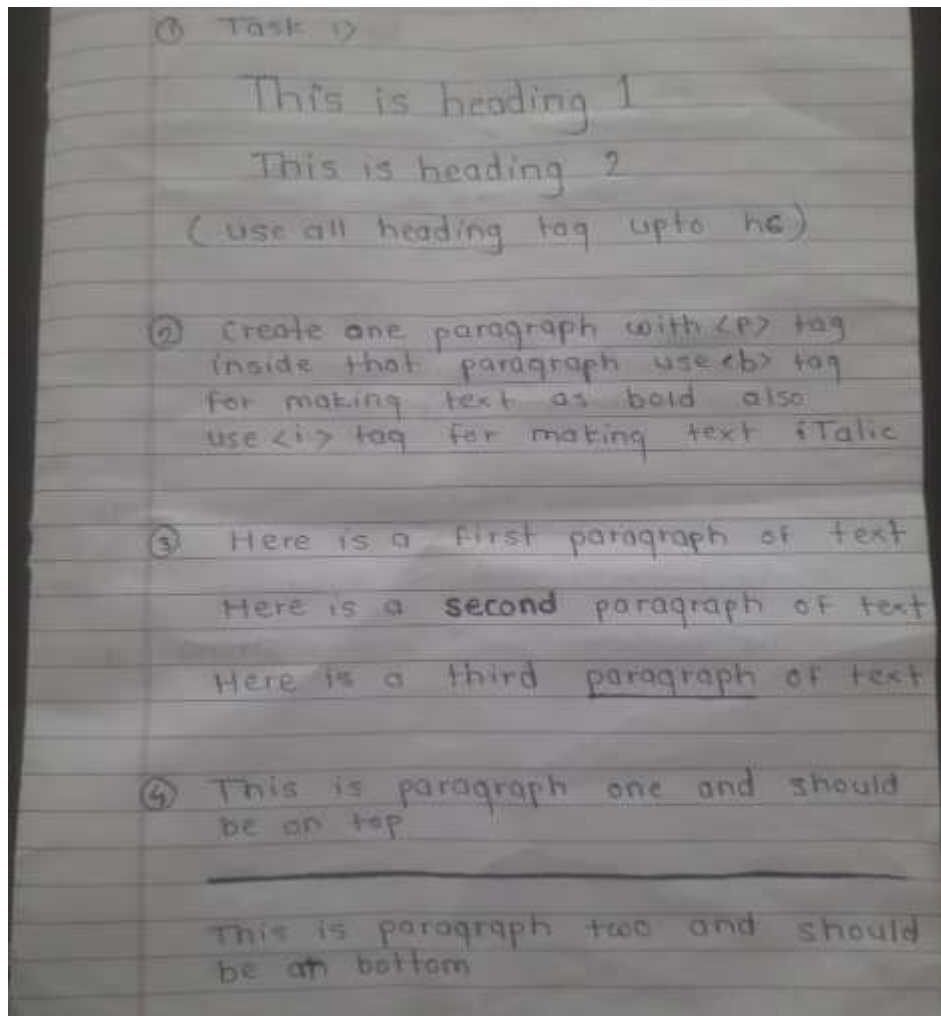 ① Task 1>
This is heading 1
This is heading 2
(use all heading tag upto h6)
② create one paragraph with <P> tag
inside that paragraph use <b> tag
for making text as bold also
use <i> tag for making text iTalic
③ Here is a first paragraph of text
Here is a second paragraph of text
Here is a third paragraph of text
④ This is paragraph one and should
be on top
This is paragraph two and should
be at bottom